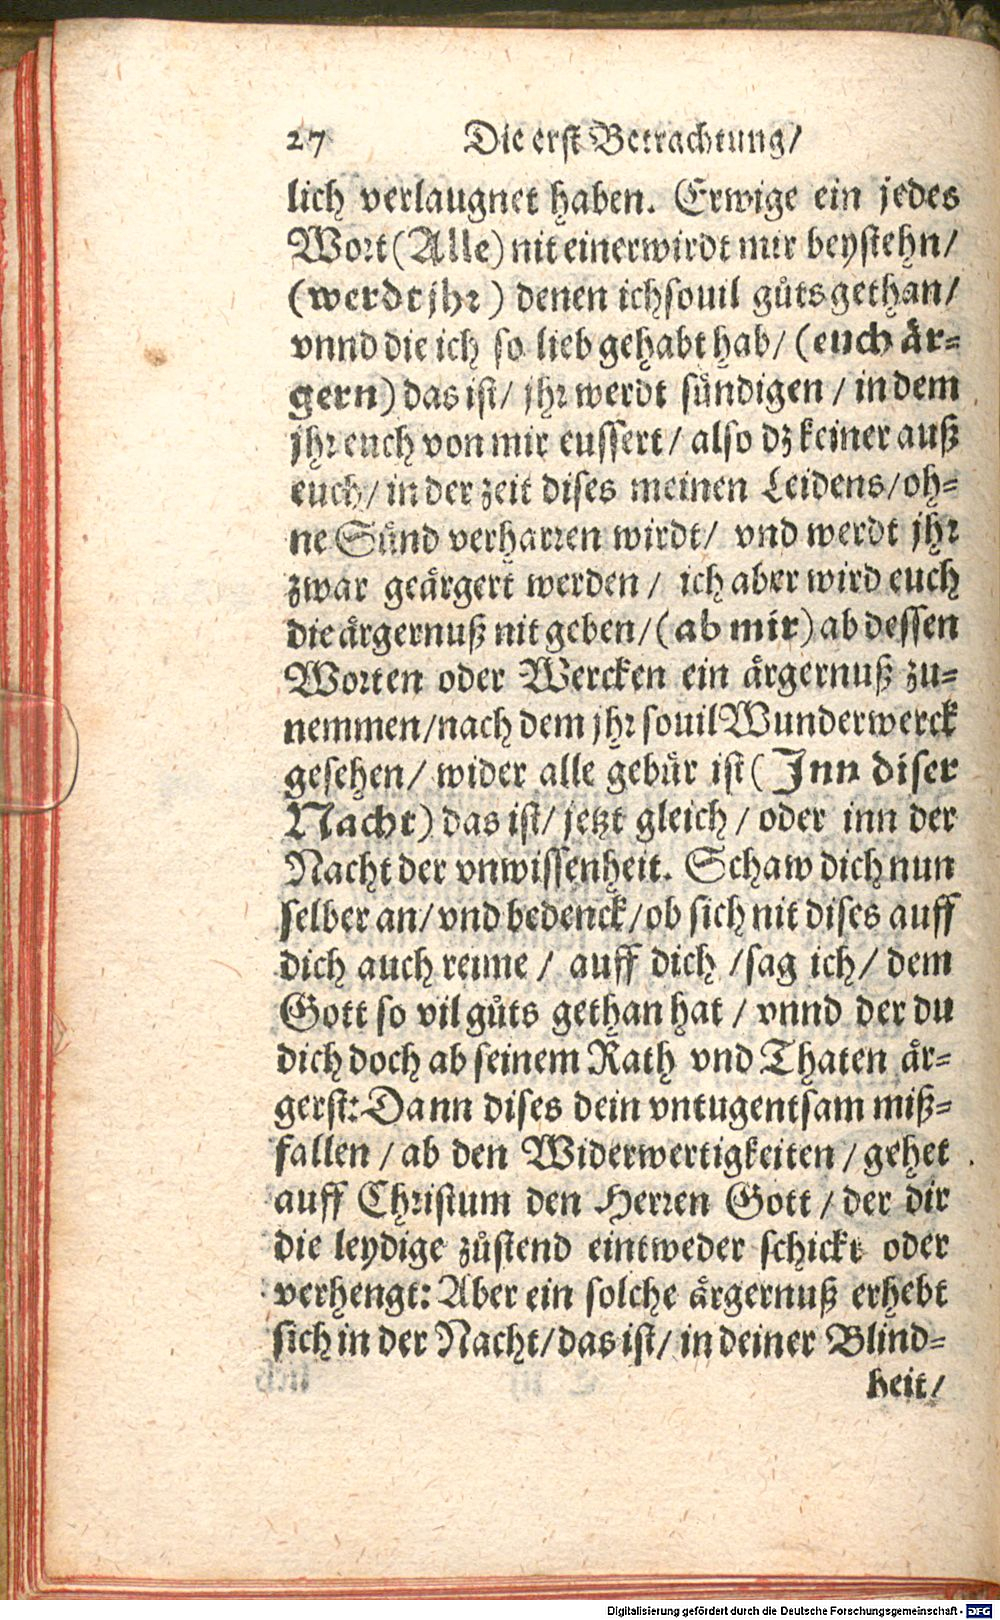 27 Die erst Betrachtung/
lich verlaugnet haben. Erwige ein jedes
Wort (Alle) nit einer wirdt mir beystehn/
(werdt jhr) denen ich souil gůts gethan/
vnnd die ich so lieb gehabt hab/ (euch är-
gern) das ist/ jhr werdt sündigen / in dem
jhr euch von mir eussert/ also dz keiner auß
euch/ in der zeit dises meinen Leidens/ oh-
ne Sünd verharren wirdt/ vnd werdt jhr
zwar geärgert werden / ich aber wird euch
die ärgernuß nit geben/ (ab mir) ab dessen
Worten oder Wercken ein ärgernuß zu-
nemmen/ nach dem jhr souil Wunderwerck
gesehen/ wider alle gebür ist (Inn diser
Nacht) das ist/ jetzt gleich / oder inn der
Nacht der vnwissenheit. Schaw dich nun
selber an/ vnd bedenck/ ob sich nit dises auff
dich auch reime / auff dich /sag ich/ dem
Gott so vil gůts gethan hat / vnnd der du
dich doch ab seinem Rath vnd Thaten är-
gerst: Dann dises dein vntugentsam miß-
fallen / ab den Widerwertigkeiten / gehet
auff Christum den Herren Gott / der dir
die leydige zůstend eintweder schickt oder
verhengt: Aber ein solche ärgernuß erhebt
sich in der Nacht/ das ist/ in deiner Blind-
heit/
Digitalisierung gefördert durch die Deutsche Forschungsgemeinschaft - DFG